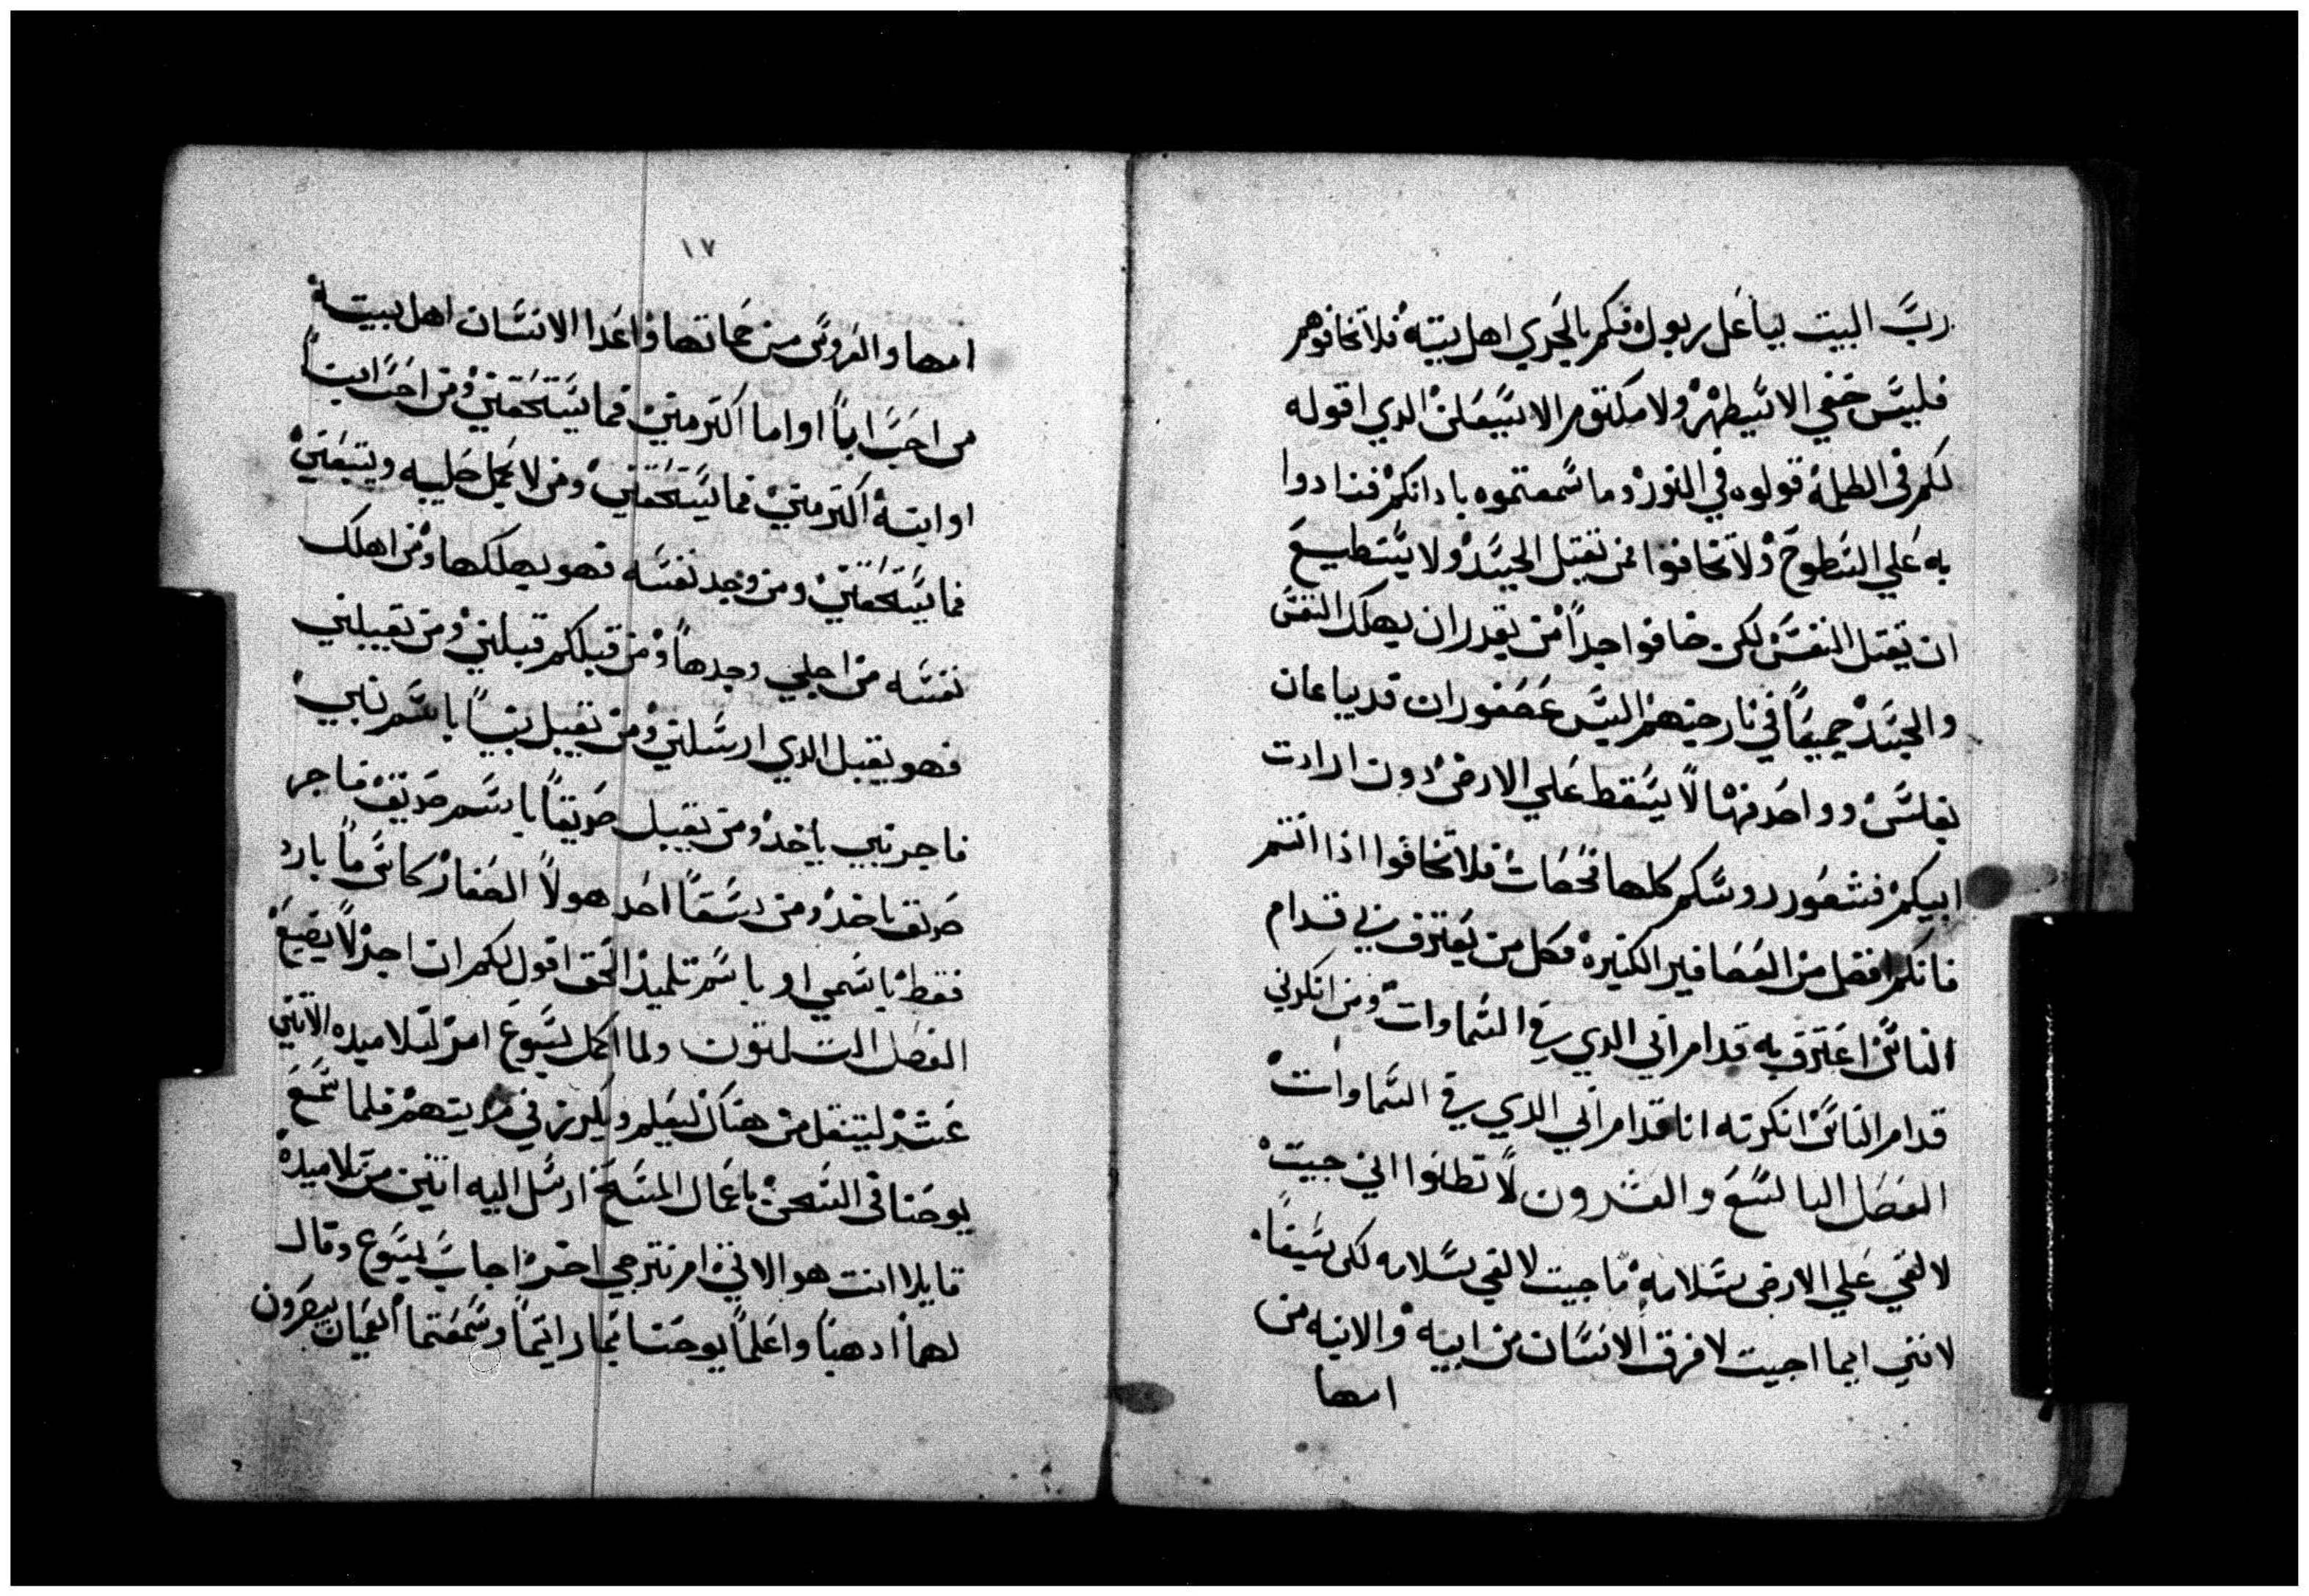 ربَّ البيت بباعل ربول فكم بالحري اهل بيته فلا تخافوهم
فليسَ خفي الا سَيظهر ولا مكتوم الا سَيعلن الدي اقوله
لكم في الظلمه قولوه في النور وما سَمعتموه بادانكم فنادوا
به علي السَطوح ولا تخافوا ممن يقتل الجسَد ولا يسَتطيع
ان يقتل النفسَ لكن خافوا جداً من يقدر ان يهلك النفسَ
والجسَد جميعاً في نار جهنم اليسَ عصفوران قد يباعان
بفلسَ وواحد منهما لا يسَقط علي الارض دون ارادت
ابيكم فشعور روسَكم كلها محصات فلا تخافوا اذا انتم
فانكم افضل من العصافير الكتيره فكل من يعترف بي قدام
الناسَ اعترف به قدام ابي الدي في السَماوات ومن انكرني
قدام الناسَ انكرته انا قدام ابي الدي في السَماوات
الفصل التاسَع والعشرون لا تظنوا اني جيت
لالقي علي الارض سَلامه ما جيت لالقي سَلامه لكن سَيفاً
لانني ايما اجيت لافرق الانسَان من ابيه والابنه من
امها
١٧
امها والعروسَ من حماتها واعدا الانسَان اهل بيته
من احبَّ اباً او اما اكتر مني فما يسَتحقني ومن احبَّ ابناً
او ابنة اكتر مني فما يسَتحقني ومن لا يحمل صليبه ويتبعني
فما يسَتحقني ومن وجد نفسَه فهو يهلكها ومن اهلك
نفسَه من اجلي وجدها ومن قبلكم قبلني ومن يقبلني
فهو يقبل الدي ارسَلني ومن يقبل نبياً باسَم نبي
فاجر نبي ياخد ومن يقبل صديقاً باسَم صديق فاجر
صديق ياخد ومن سَقا احد هولا الصغار كاسَ ماً بارد
فقط باسَمي او باسَم تلميذ الحق اقول لكم ان اجره لا يضيع
الفصل التلتون ولما اكمل يسَوع امره لتلاميده الاتني
عشر لينتقل من هناك ليعلم ويكرز في مدينتهم فلما سَمع
يوحنا في السَجن باعمال المسَيح ارسَل اليه اتنين من تلاميده
قايلا انت هو الاتي ام نترجي اخر اجاب يسَوع وقال
لهما ادهبا واعلما يوحنا بما رايتما وسَمعتما العميان يبصرون